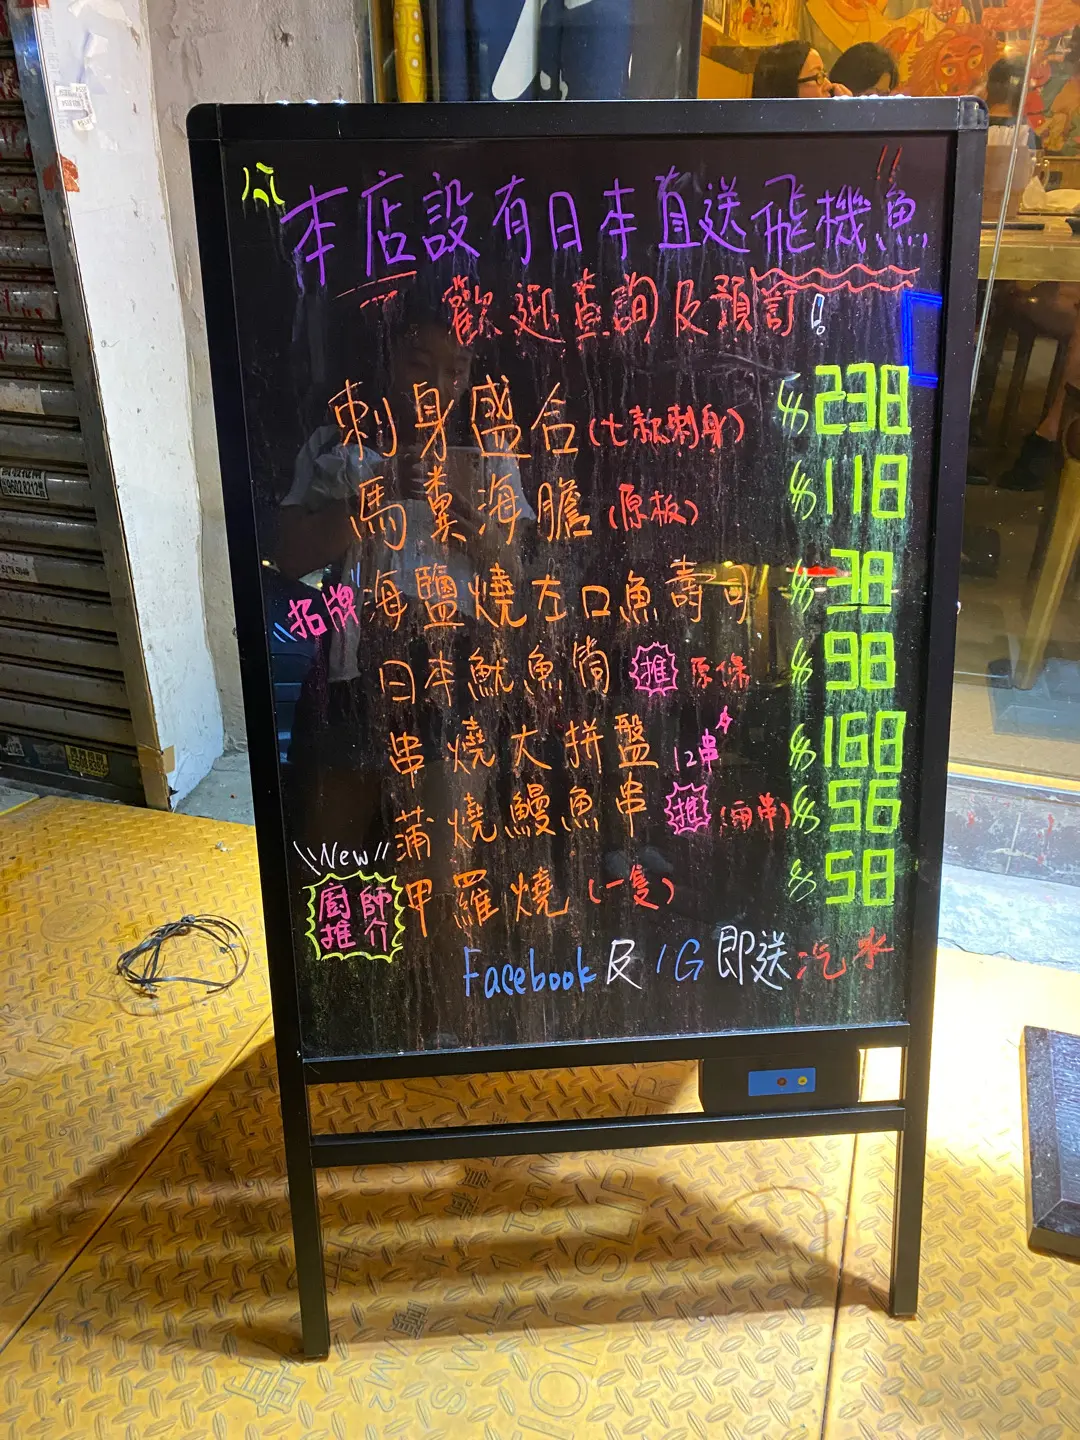 本店設有日本直送飛機魚!!
歡迎查詢及預訂!
刺身盛合(七款刺身) $238
馬糞海膽(原板) $118
招牌 海鹽燒左口魚壽司 $38
日本魷魚筒 推 原條 $98
串燒大拼盤 12串 $168
蒲燒鰻魚串 推 (兩串) $56
\\New//
廚師推介 甲羅燒(一隻) $58
Facebook及IG即送汽水